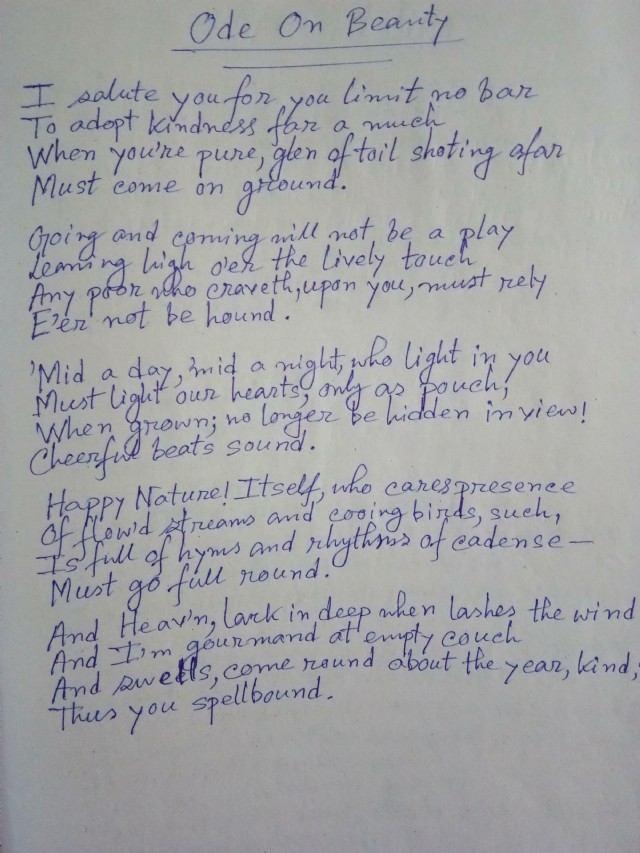 Ode On Beauty
I salute you for you limit no bar
To adopt kindness far a much
When you're pure, glen of toil shoting afar
Must come on ground.
Going and coming will not be a play
Leaning high o'er the lively touch
Any poor who craveth, upon you, must rely
E'er not be hound.
'Mid a day, 'mid a night, who light in you
Must light our hearts, only as pouch;
When grown; no longer be hidden in view!
Cheerful beats sound.
Happy Nature! Itself, who cares presence
Of flow'd streams and cooing birds, such,
Is full of hyms and rhythms of cadense —
Must go full round.
And Heav'n, lark in deep when lashes the wind
And I'm gourmand at empty couch
And swells, come round about the year, kind,
Thus you spellbound.